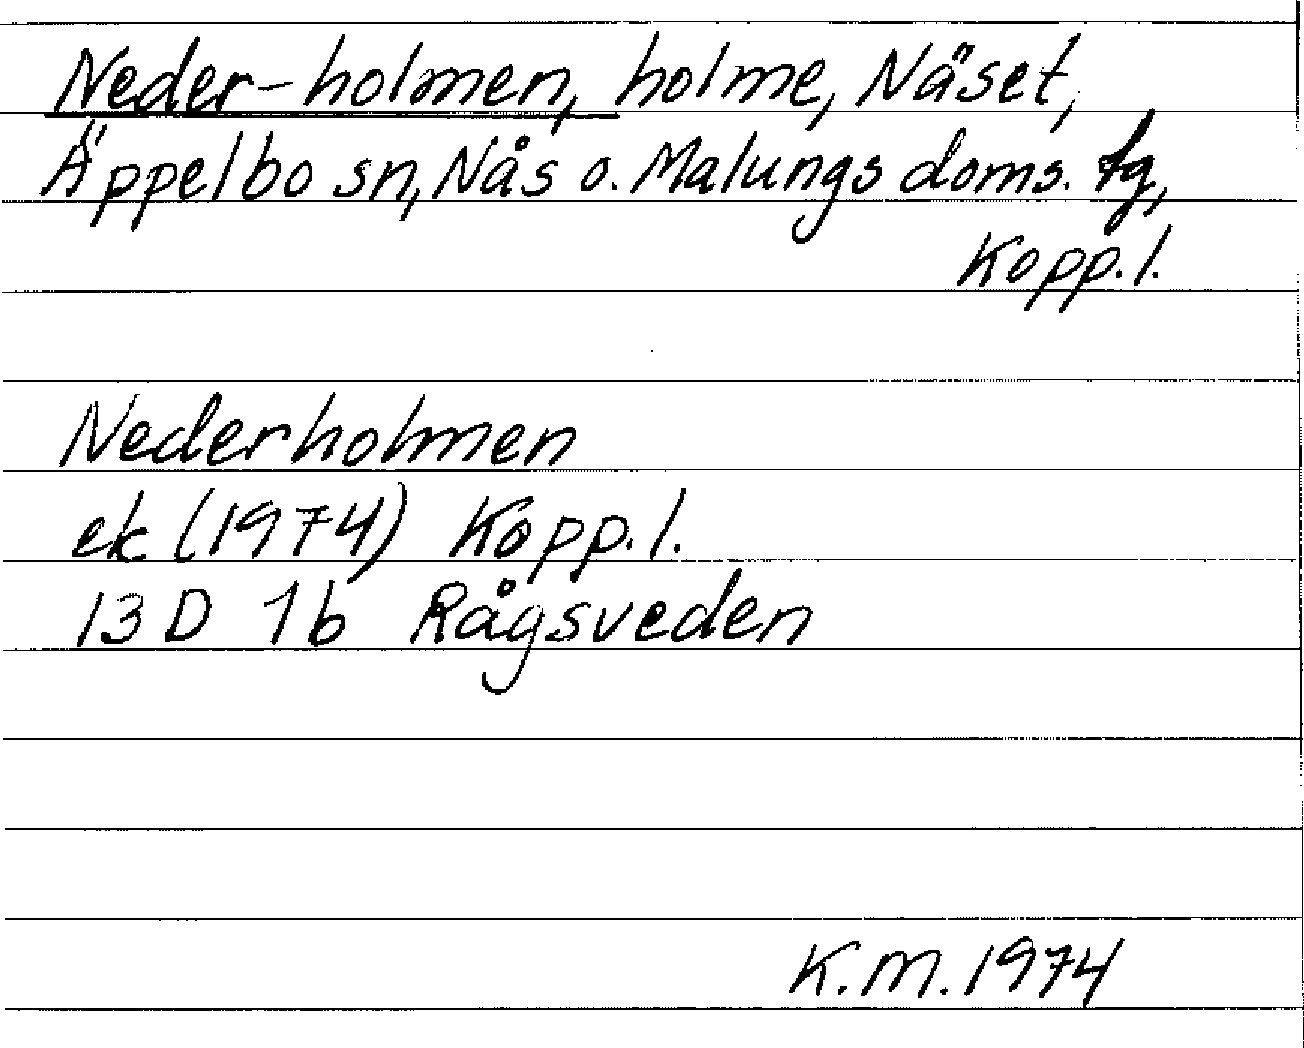 Neder-holmen, holme, Näset,
Äppelbo sn, Nås o. Malungs doms. tg,
Kopp.l.
Nederholmen
ek (1974) Kopp.l.
13D 1b Rågsveden
K.M. 1974